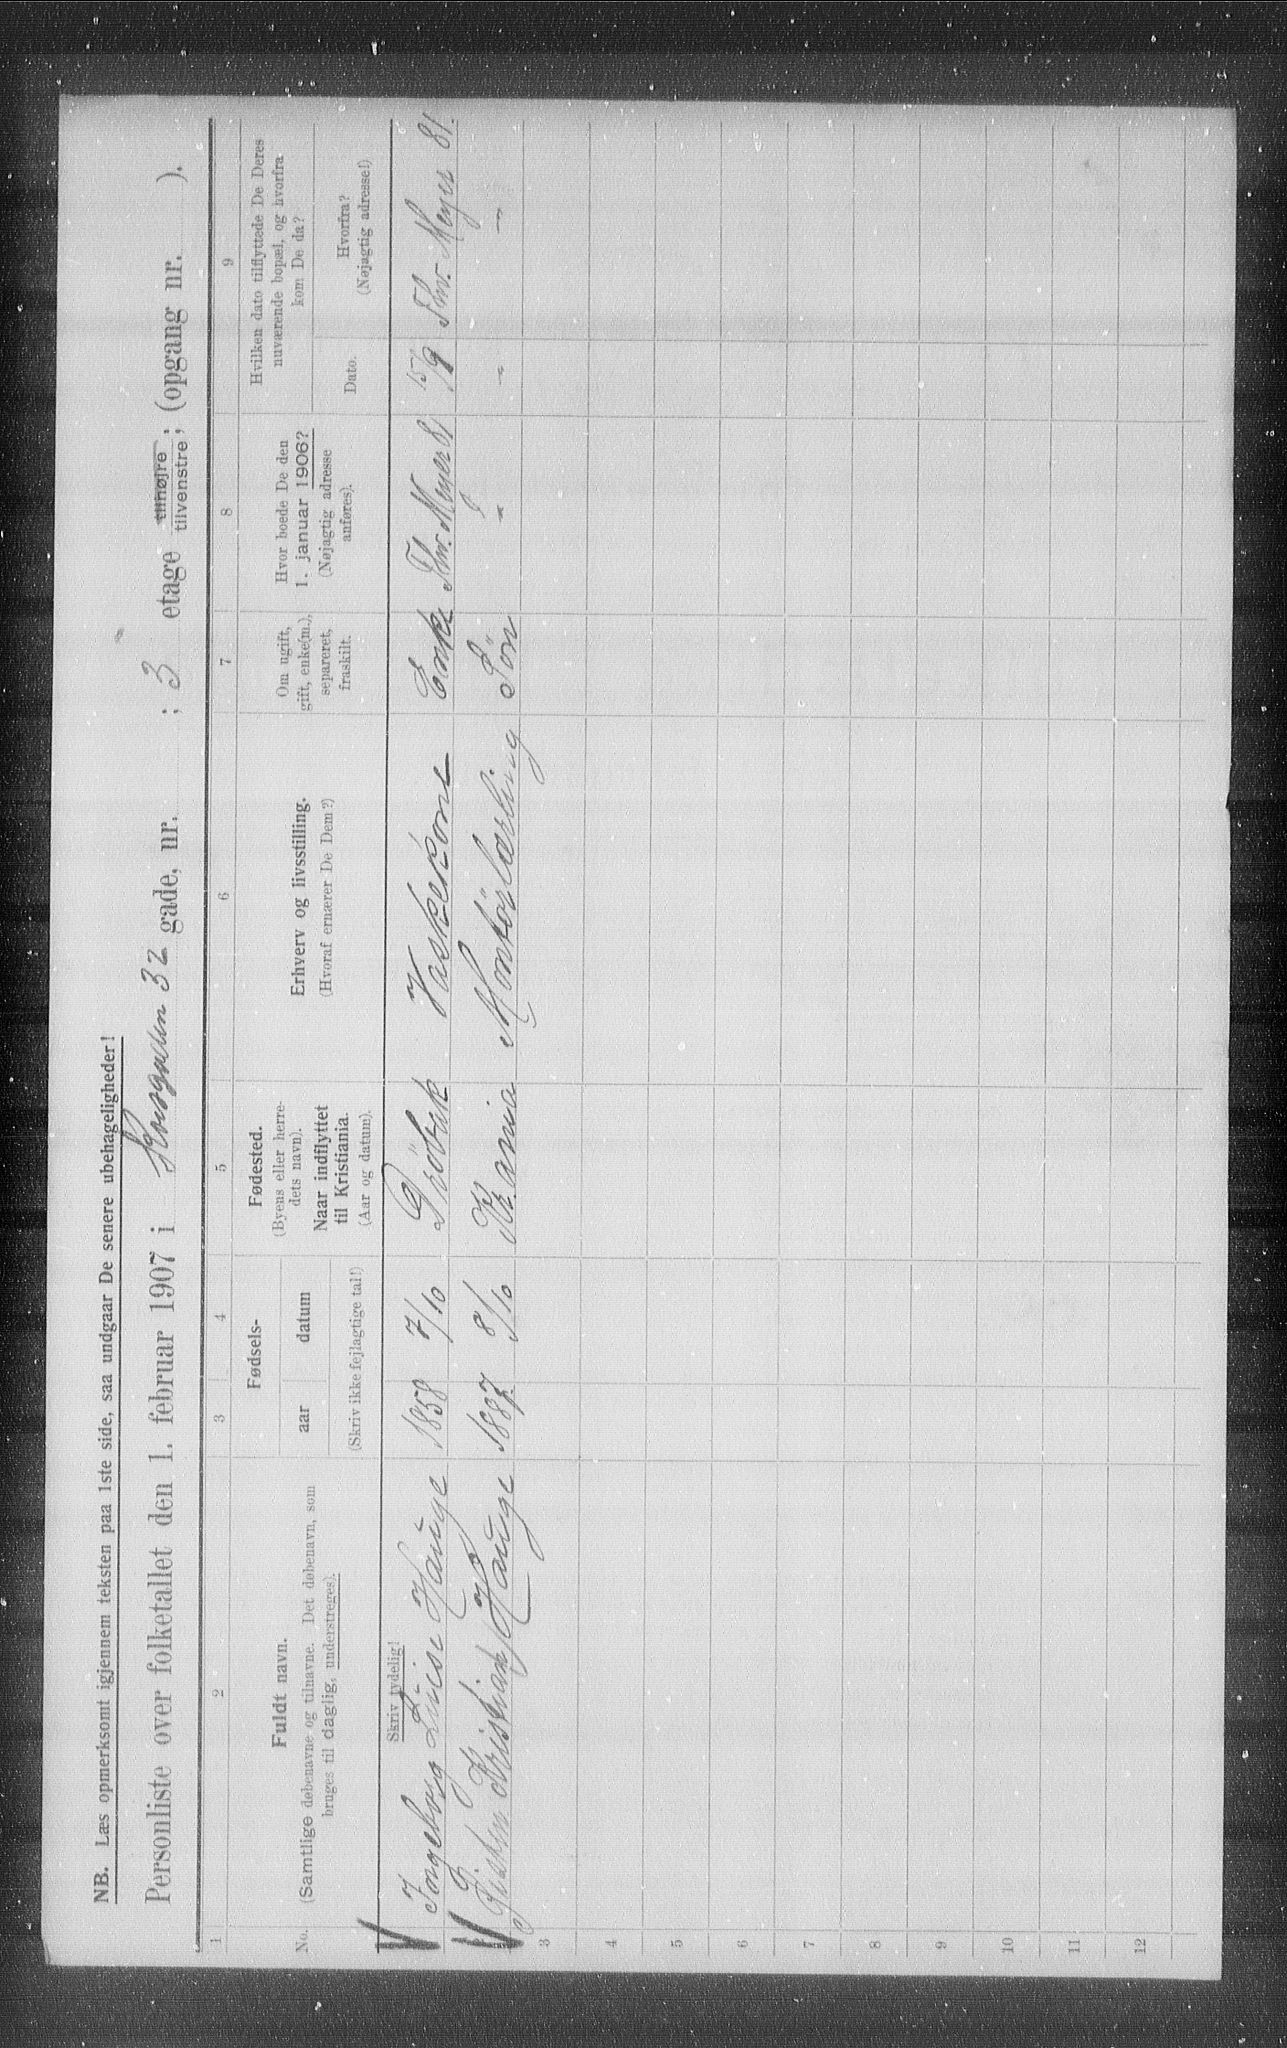 NB. Læs opmerksomt igjennem teksten paa 1ste side, saa undgaar De senere ubehageligheder!
Personliste over folketallet den 1. februar 1907 i Korsgaden 32 gade, nr. ; 3 etage tilhøjre tilvenstre; (opgang nr. ).
1 2 3 4 5 6 7 8 9
No.
Fuldt navn.
(Samtlige døbenavne og tilnavne. Det døbenavn, som
bruges til daglig, understreges).
Fødsels-
aar datum
(Skriv ikke fejlagtige tal!)
Fødested.
(Byens eller herre-
dets navn).
Naar indflyttet
til Kristiania.
(Aar og datum).
Erhverv og livsstilling.
(Hvoraf ernærer De Dem?)
Om ugift,
gift, enke(m.),
separeret,
fraskilt.
Hvor boede De den
1. januar 1906?
(Nøjagtig adresse
anføres).
Hvilken dato tilflyttede De Deres
nuværende bopæl, og hvorfra
kom De da?
Dato.
Hvorfra?
(Nøjagtig adresse!)
Skriv tydelig!
Ingeborg Lovise Hauge 1858 7/10 Dröbak Vaskekone Enke Thv. Meyer 81 15/9 Thv. Meyer 81.
Kristian Hauge 1887. 8/10 Kr.ania Montörlærling Sön " - "
3
4
5
6
7
8
9
10
11
12